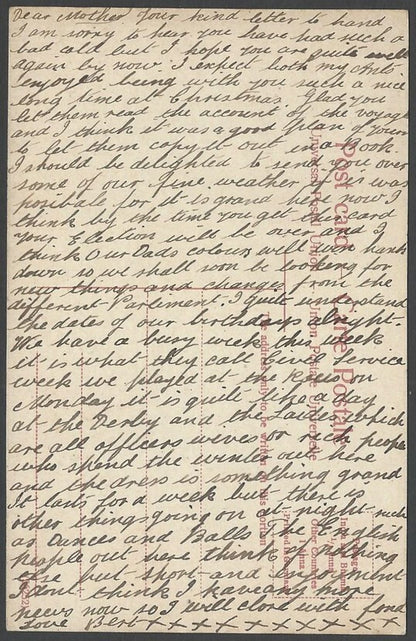 Dear Mother Your kind letter to hand
I am sorry to hear you have had such a
bad cold but I hope you are quite well
again by now. I expect both my
enjoyed being with you such a nice
long time at Christmas. Glad you
let them read the account of the voyage
and I think it was a good plan of yours
to let them copy it out in a book.
I should be delighted to send you over
some of our fine weather if it was
possible for it is grand here now I
think by the time you get this card
your Election will be over and I
think Our Dads colours will win hands
down so we shall soon be looking for
new things and changes from the
different Parliment. I quite understand
the dates of our birthdays alright.
We have a busy week this week
it is what they call Civil Service
week we played at the Races on
Monday it is quite like a day
at the Derby and the Ladies which
are all officers wives or rich people
who spend the winter out here
and the dress is something grand
It lasts for a week but there is
other things going on at night such
as Dances and Balls the English
people out here think of nothing
else but sport and enjoyment
I dont think I have any more
news now so I will close with fond
love Bert x x x x x x x x x x
Post card Carte Postale
Universal Postal Union Union Postale Universelle
The address only to be written on this portion
Postage
Inland
Other Countries
Printed in